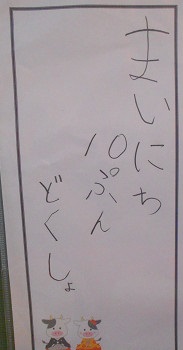 まいにち
10ぷん
どくしょ